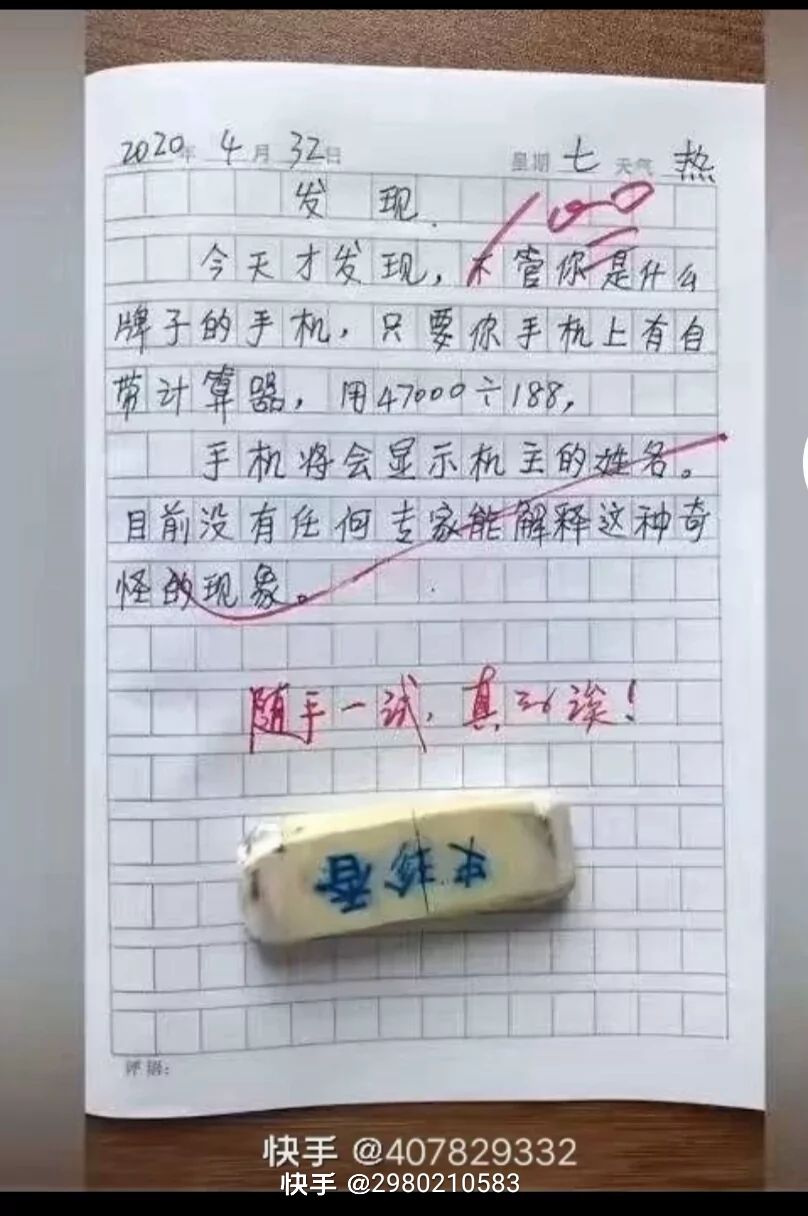 2020年 4月 32日 星期 七 天气 热
发现.
100
今天才发现，不管你是什么
牌子的手机，只要你手机上有自
带计算器，用47000÷188，
手机将会显示机主的姓名。
目前没有任何专家能解释这种奇
怪的现象。
随手一试，真的诶！
史珍香
评语：
快手 @407829332
快手 @2980210583